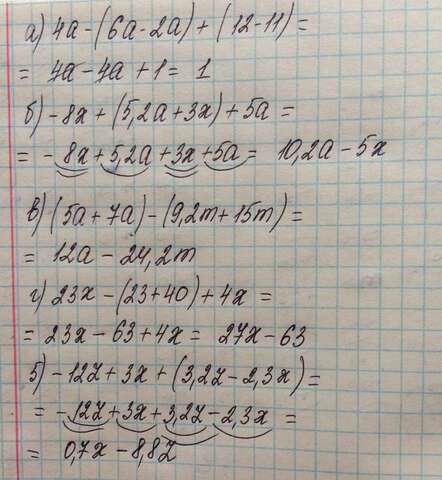 а) 4a-(6a-2a)+(12-11)=
= 4a-4a+1= 1
б) -8x+(5,2a+3x)+5a=
= -8x+5,2a+3x+5a= 10,2a-5x
в) (5a+7a)-(9,2m+15m)=
= 12a-24,2m
г) 23x-(23+40)+4x=
= 23x-63+4x= 27x-63
5) -12z+3x+(3,2z-2,3x)=
= -12z+3x+3,2z-2,3x=
= 0,7x-8,8z